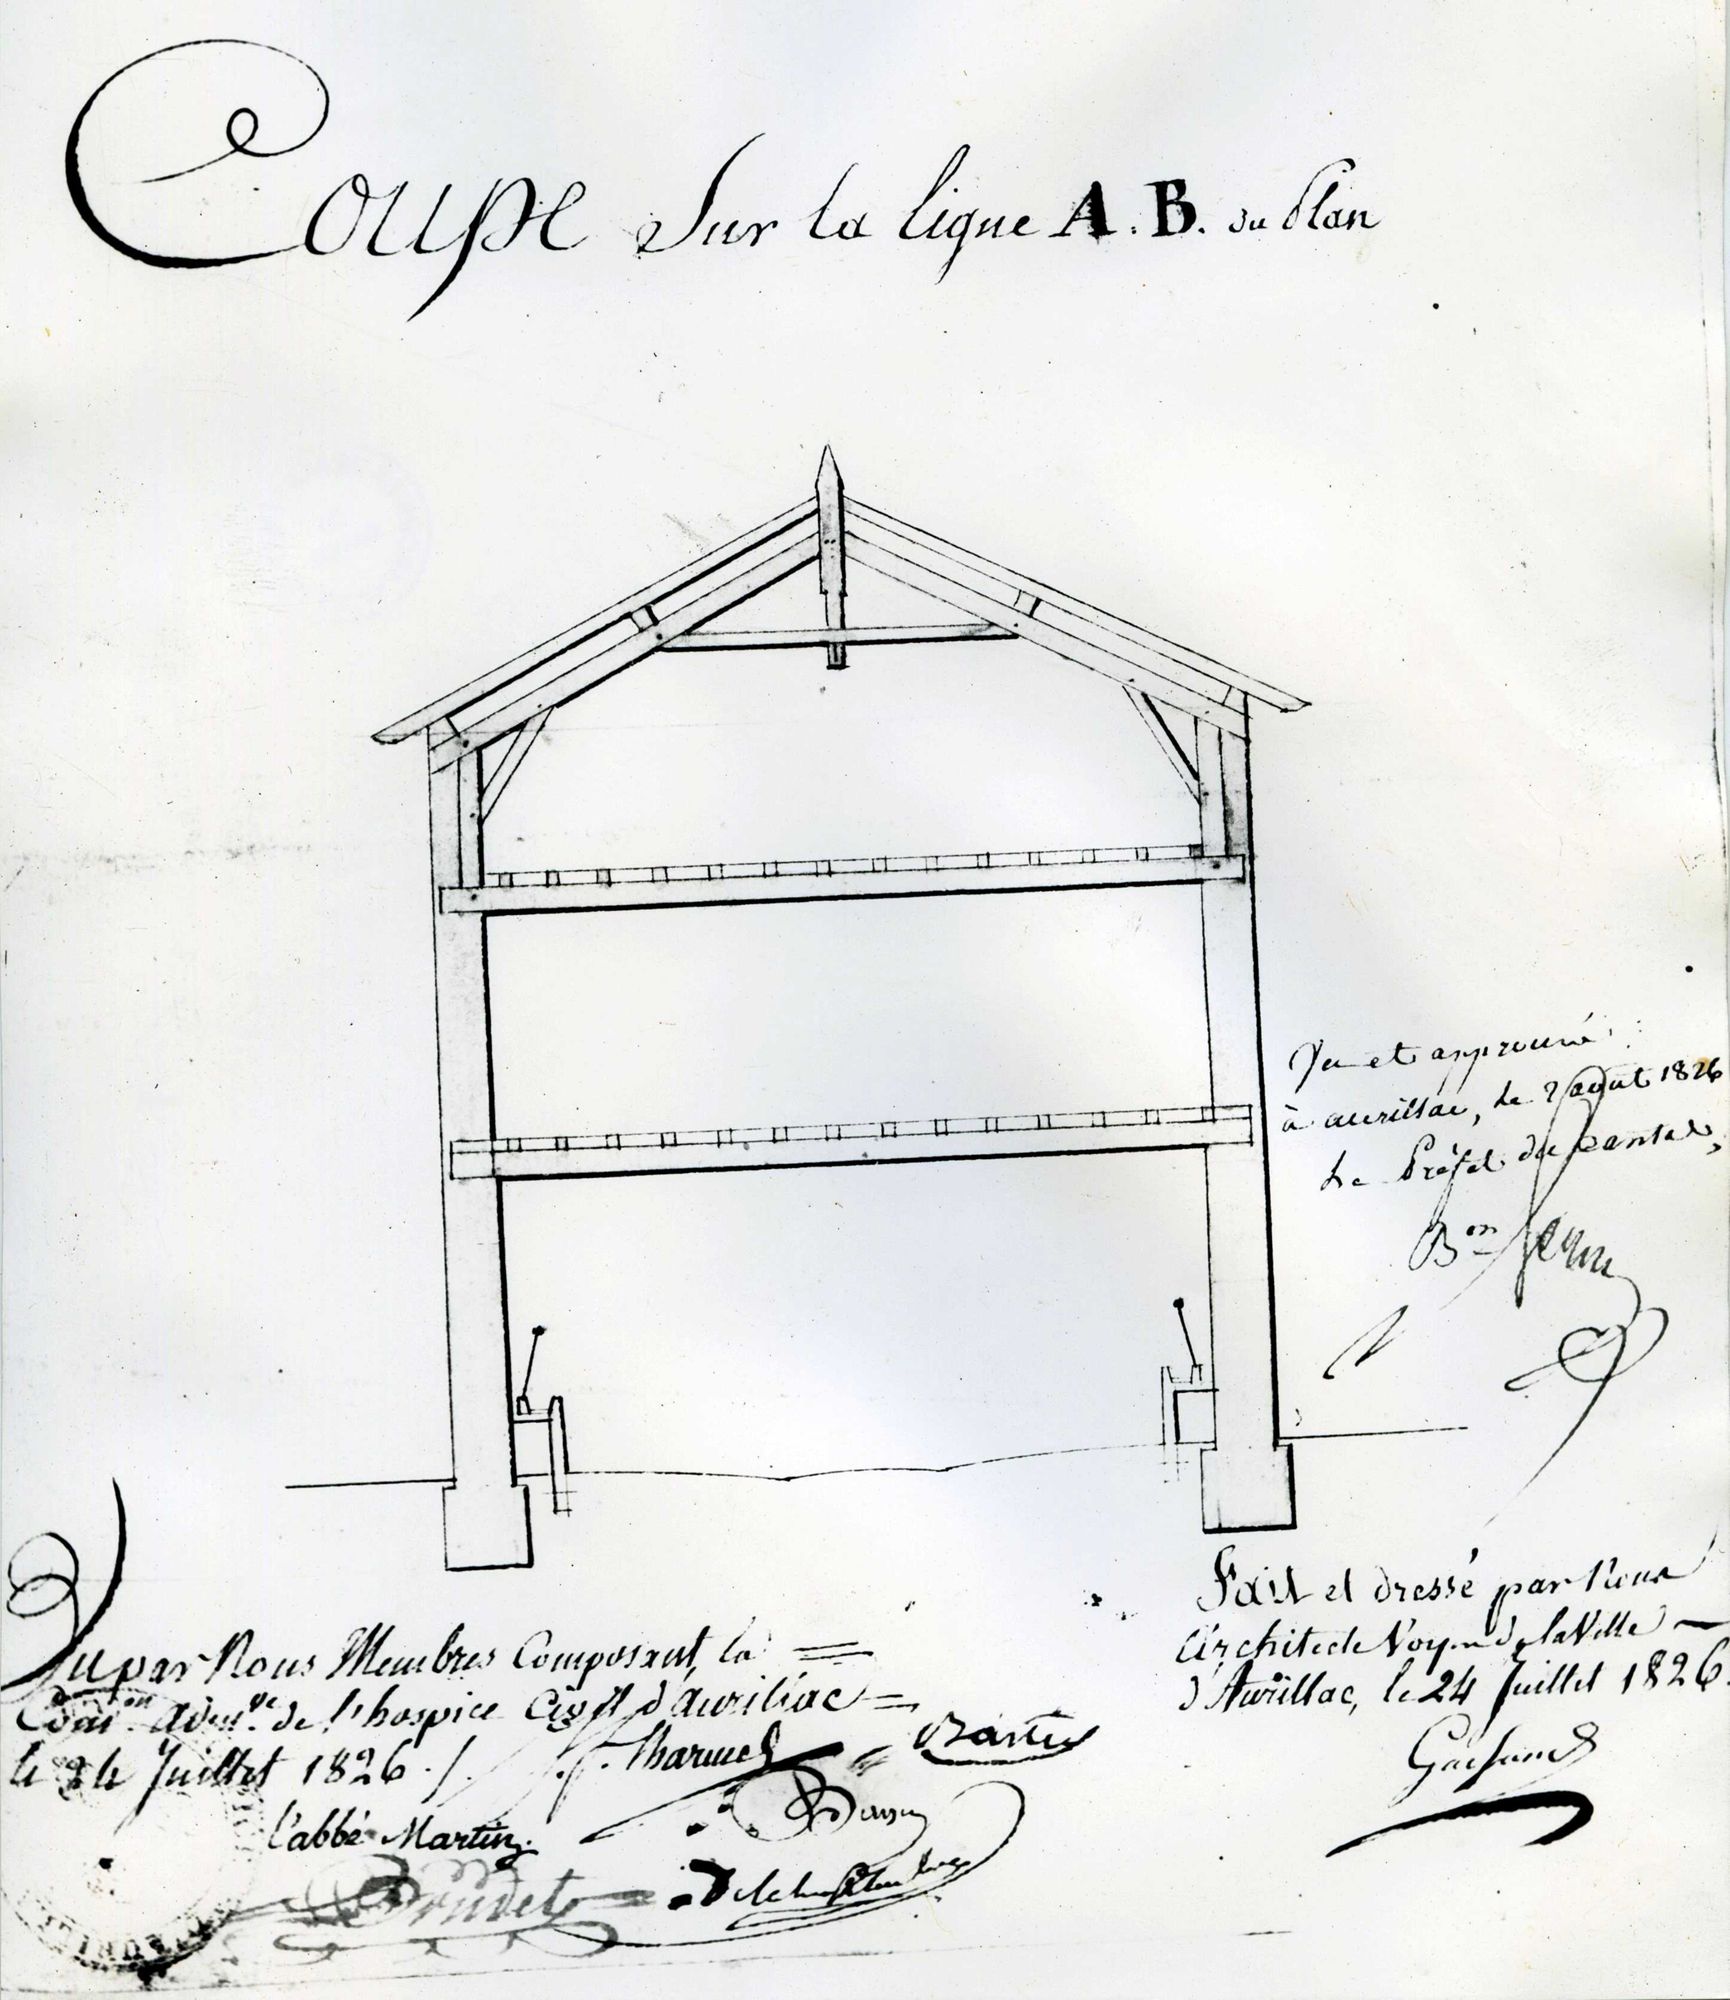 Coupe Sur la ligne A.B. du Plan
Vu et approuvé
à aurillac, le 2 août 1826
Le Préfet du Cantal,
Bon
Fait et dressé par Nous
Architecte Voyer de la Ville
d'Aurillac, le 24 Juillet 1826.
Vu par Nous Membres Composant la
Comon admve de l'hospice Civil d'aurillac
le 24 Juillet 1826.
l'abbé Martin